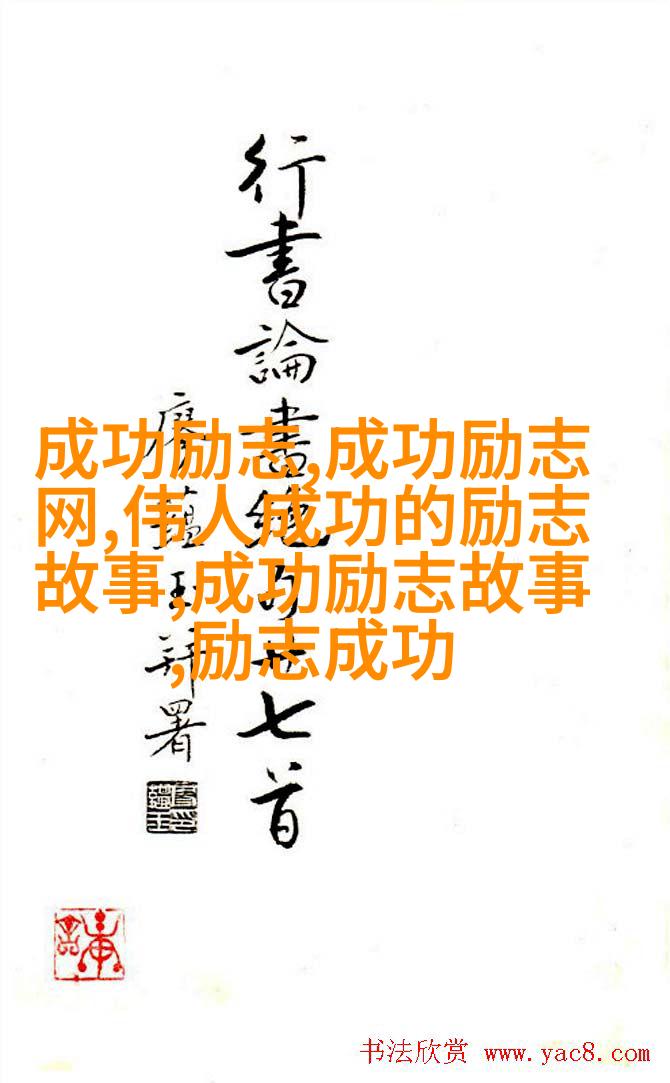 行書論書絕句卅七首
廖蘊玉
署
成功励志,成功励志
网,伟人成功的励志
故事,成功励志故事
,励志成功
书法欣赏 www.yac8.com